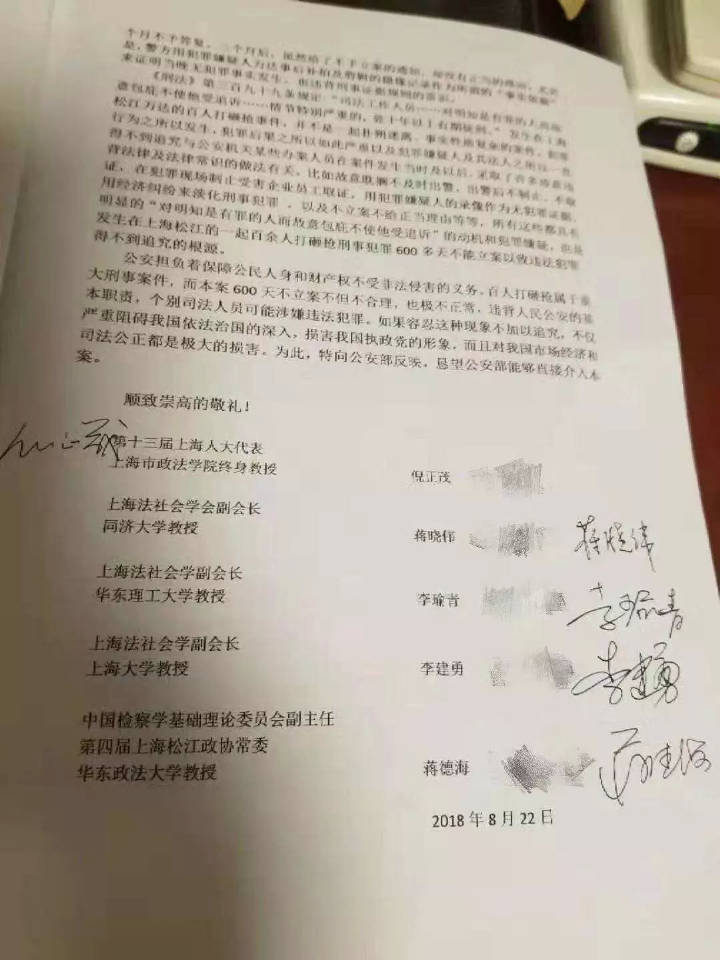 个月不予答复。三个月后，虽然给了不予立案的通知，却没有正当的理由，尤其
是，警方用犯罪嫌疑人方达事后补拍及剪辑的摄像记录作为所谓的“事实依据”
来证明当晚无犯罪事实发生，更违背刑事证据规则的常识。
《刑法》第三百九十九条规定：“司法工作人员……对明知是有罪的人而故
意包庇不使他受追诉……情节特别严重的，处十年以上有期徒刑。”发生在上海
松江万达的百人打砸抢事件，并不是一起扑朔迷离、事实性质复杂的案件，犯罪
行为之所以发生，犯罪后果之所以如此严重以及犯罪嫌疑人及其法人之所以一直
得不到追究与公安机关某些办案人员在案件发生当时及以后，采取了许多故意违
背法律及法律常识的做法有关，比如故意耽搁不及时出警，出警后不制止，不取
证，在犯罪现场制止受害企业员工取证，用犯罪嫌疑人的录像作为无犯罪证据，
用经济纠纷来淡化刑事犯罪，以及不立案不给正当理由等等，所有这些都具有
明显的“对明知是有罪的人而故意包庇不使他受追诉”的动机和犯罪嫌疑，也是
发生在上海松江的一起百余人打砸抢刑事犯罪 600 多天不能立案以致违法犯罪
得不到追究的根源。
公安担负着保障公民人身和财产权不受非法侵害的义务，百人打砸抢属于重
大刑事案件，而本案 600 天不立案不但不合理，也极不正常，违背人民公安的基
本职责，个别司法人员可能涉嫌违法犯罪。如果容忍这种现象不加以追究，不仅
严重阻碍我国依法治国的深入，损害我国执政党的形象，而且对我国市场经济和
司法公正都是极大的损害。为此，特向公安部反映，恳望公安部能够直接介入本
案。
顺致崇高的敬礼！
第十三届上海人大代表
上海市政法学院终身教授 倪正茂
上海法社会学会副会长
同济大学教授 蒋晓伟 蒋晓伟
上海法社会学副会长
华东理工大学教授 李瑜青 李瑜青
上海法社会学副会长
上海大学教授 李建勇 李建勇
中国检察学基础理论委员会副主任
第四届上海松江政协常委
华东政法大学教授 蒋德海 蒋德海
2018 年 8 月 22 日